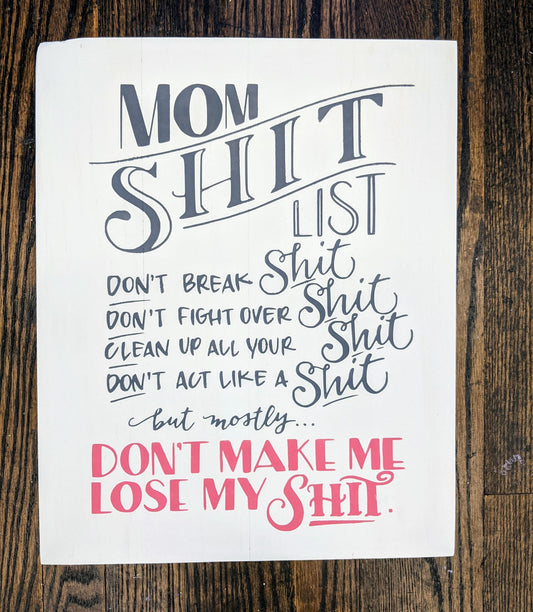 MOM
SHIT
LIST
DON'T BREAK Shit
DON'T FIGHT OVER Shit
CLEAN UP ALL YOUR Shit
DON'T ACT LIKE A Shit
but mostly...
DON'T MAKE ME
LOSE MY SHIT.